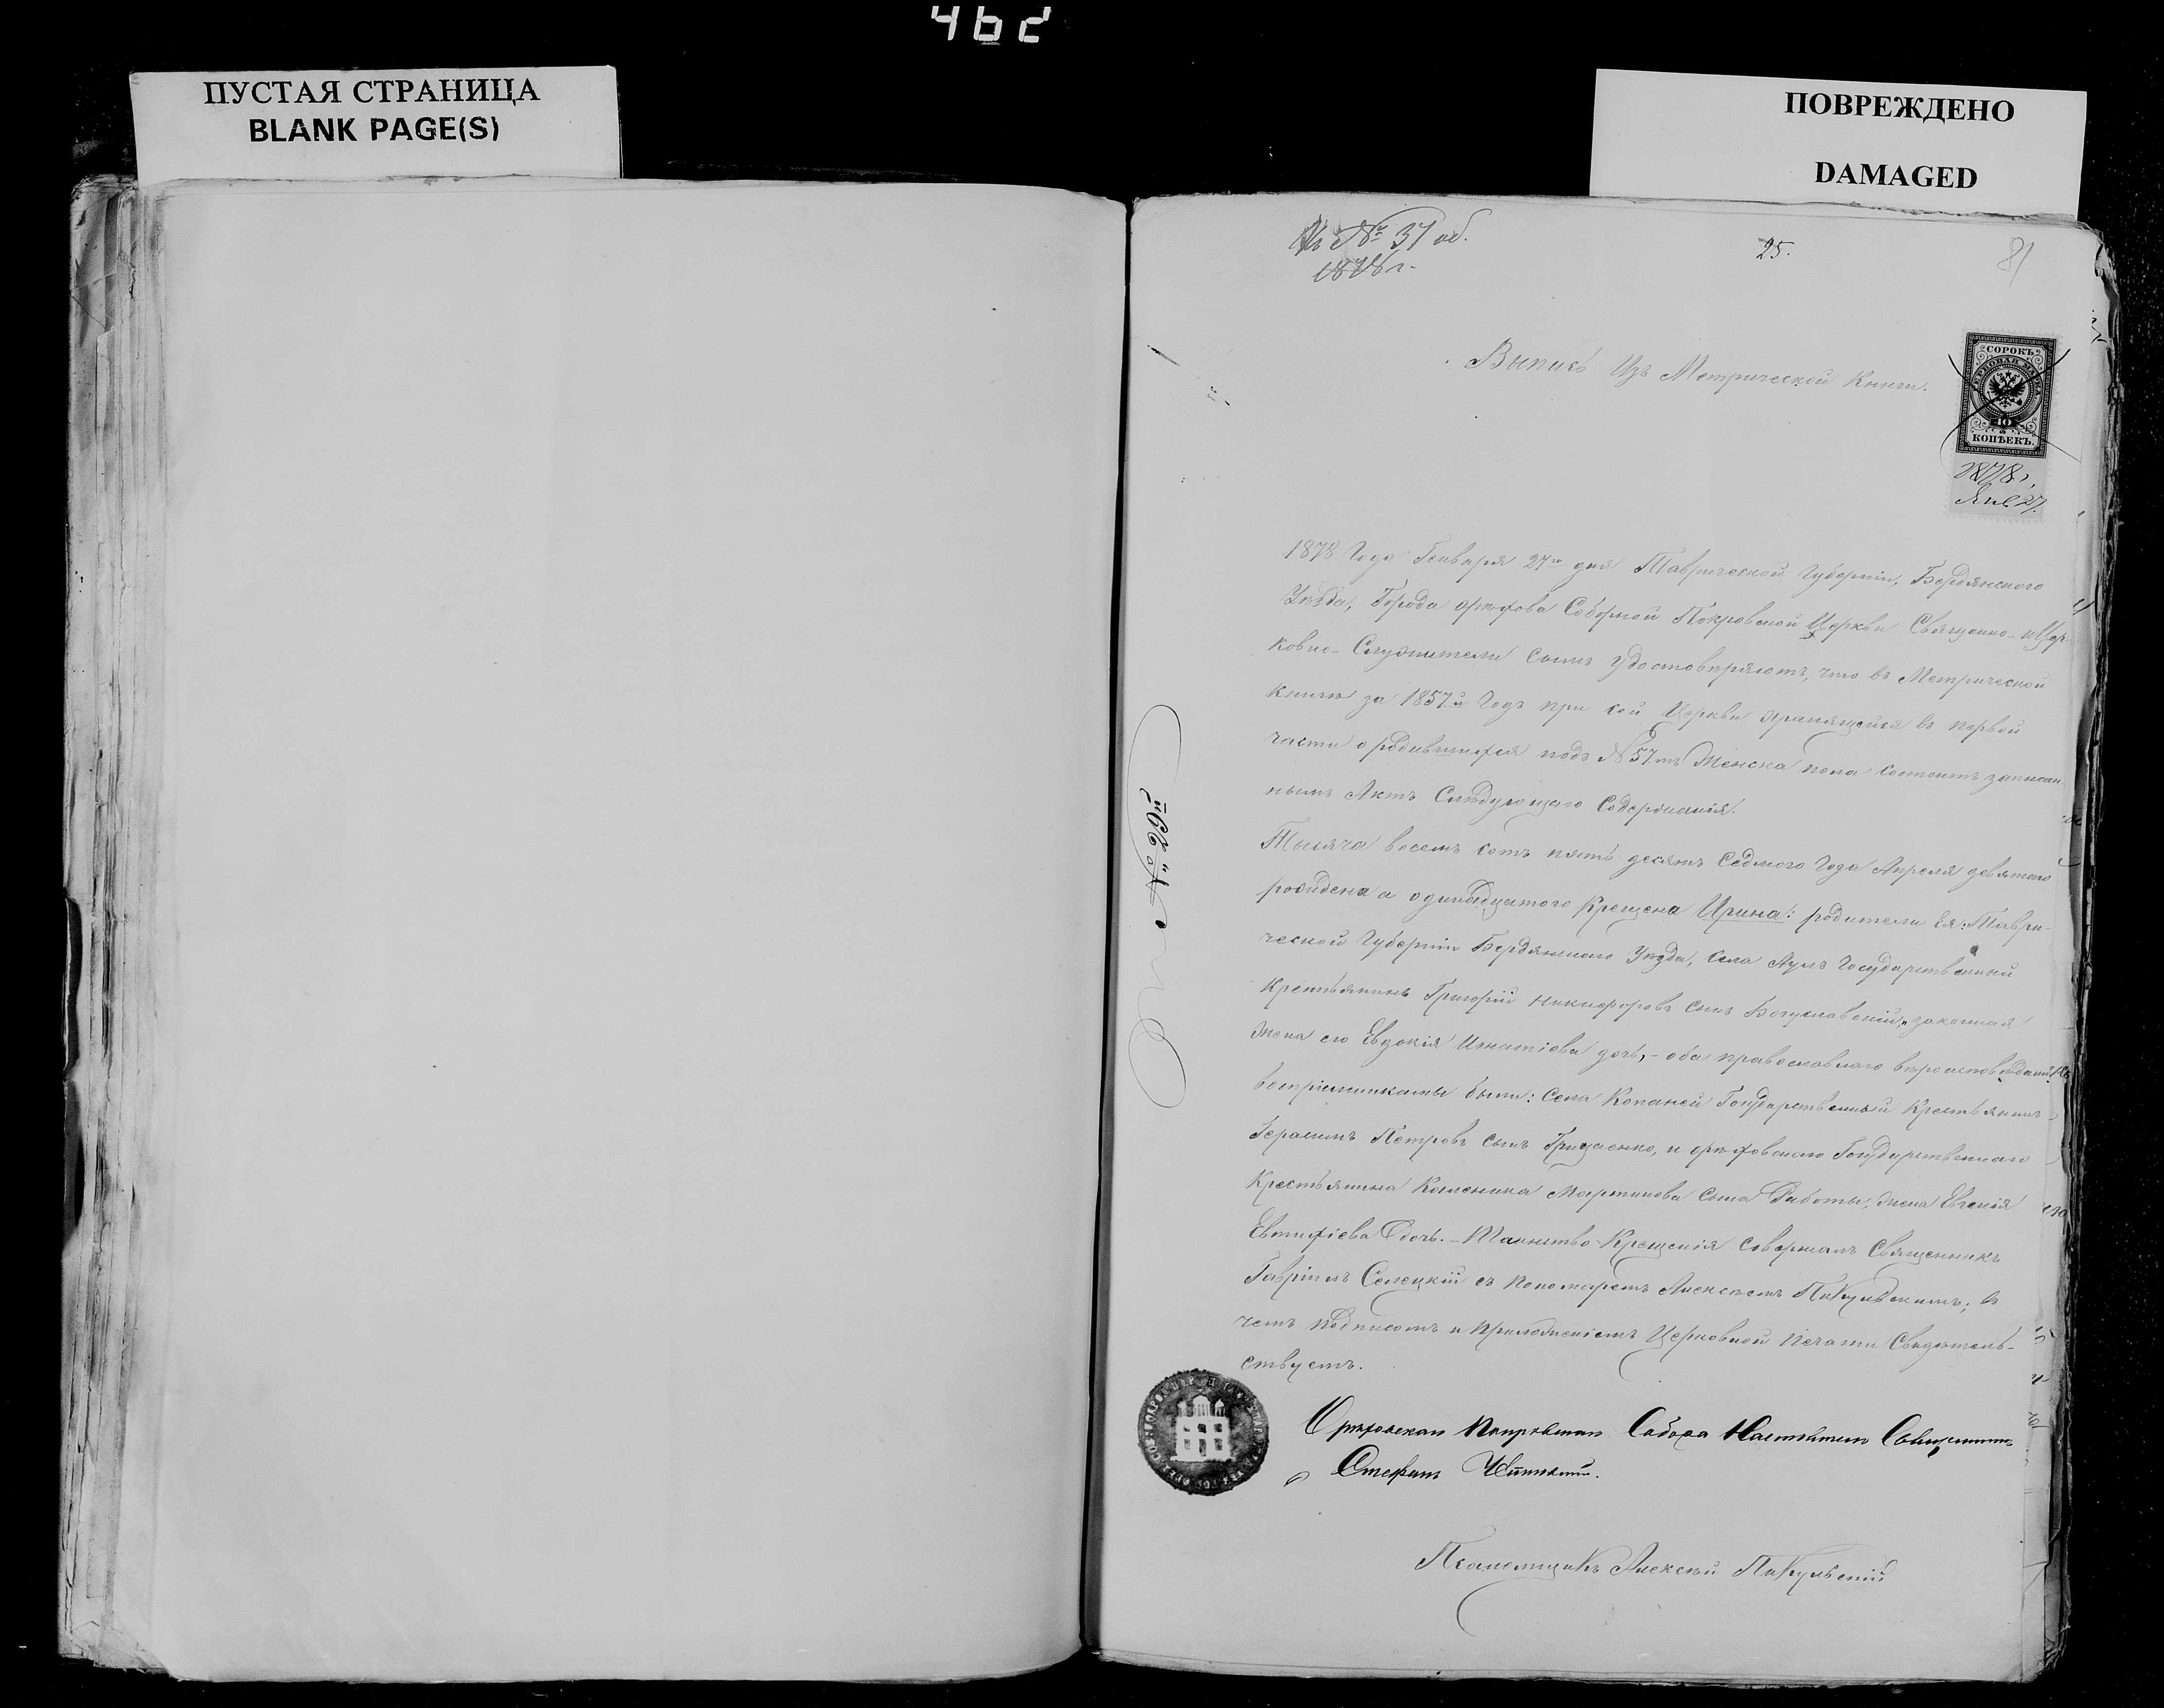 462
ПУСТАЯ СТРАНИЦА
BLANK PAGE(S)
ПОВРЕЖДЕНО
DAMAGED
Къ № 37 об.
1878 г.
25.
81
Выпись Изъ Метрической Книги.
СОРОКЪ
40
КОПѢЕКЪ.
1878 г.
Янв 27.
1878 Года Генваря 27го дня Таврической Губерніи, Бердянского
Уѣзда, Города Орѣхова Соборной Покровской Церкви Священно- и Цер-
ковно-Служители симъ удостовѣряютъ, что въ Метрической
книгѣ за 1857й Годъ при сей Церкви хранящейся въ первой
части о родившихся подъ № 57мъ Женска пола состоитъ записан
нымъ Актъ Слѣдующаго Содержанія.
Тысяча восемъ сотъ пять десятъ Седмого Года Апреля девятаго
рождена а одинадцатого Крещена Ирина: родители Ея: Таври-
ческой Губерніи Бердянского Уѣзда, села Аулъ Государственный
Крестьянинъ Григорій Никифоровъ сынъ Богуславскій, законная
жена его Евдокія Игнатіева дочь, - оба православнаго вѣроисповѣданія
воспріемниками были: Села Копаней Государственный Крестьянинъ
Герасимъ Петровъ сынъ Грищенко, и орѣховского Государственнаго
Крестьянина Каленика Мартинова сына Работы, жена Евгенія
Евтифіева дочь. - Таинство Крещенія совершалъ Священникъ
Гавріилъ Селецкій съ пономаремъ Алексѣемъ Пикульскимъ; въ
чемъ подписомъ и приложеніемъ Церковной печати Свидѣтель-
ствуетъ.
Орѣховскаго Покровскаго Собора Настоятель Священникъ
Стефанъ
Псаломщикъ Алексѣй Пикульскій